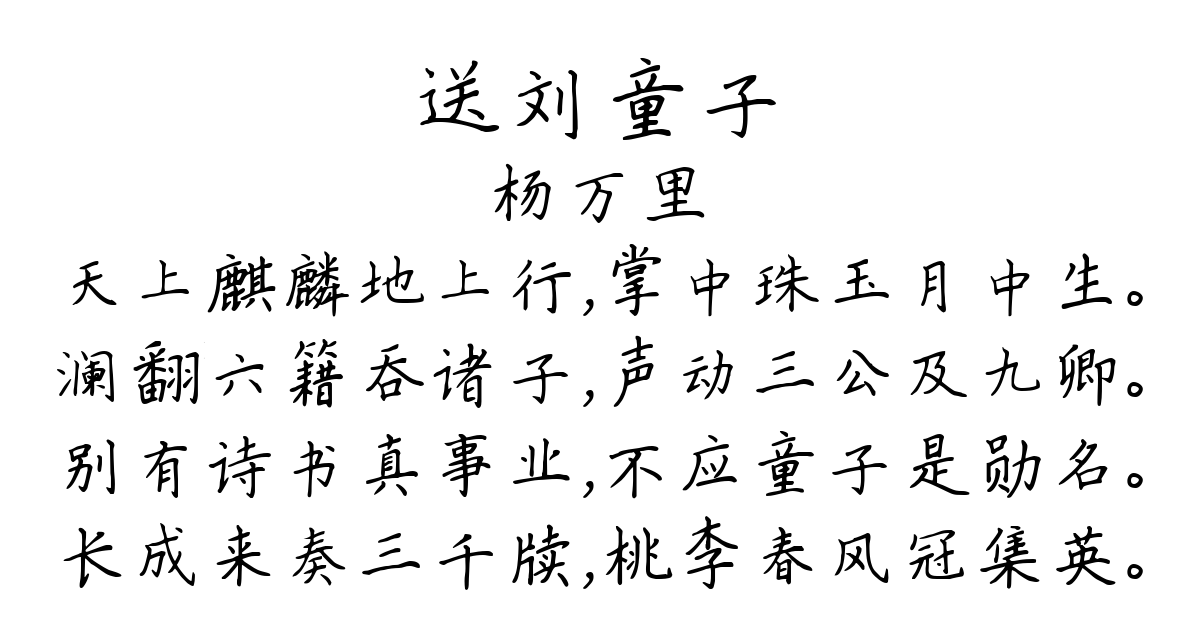 送刘童子
杨万里
天上麒麟地上行,掌中珠玉月中生。
澜翻六籍吞诸子,声动三公及九卿。
别有诗书真事业,不应童子是勋名。
长成来奏三千牍,桃李春风冠集英。